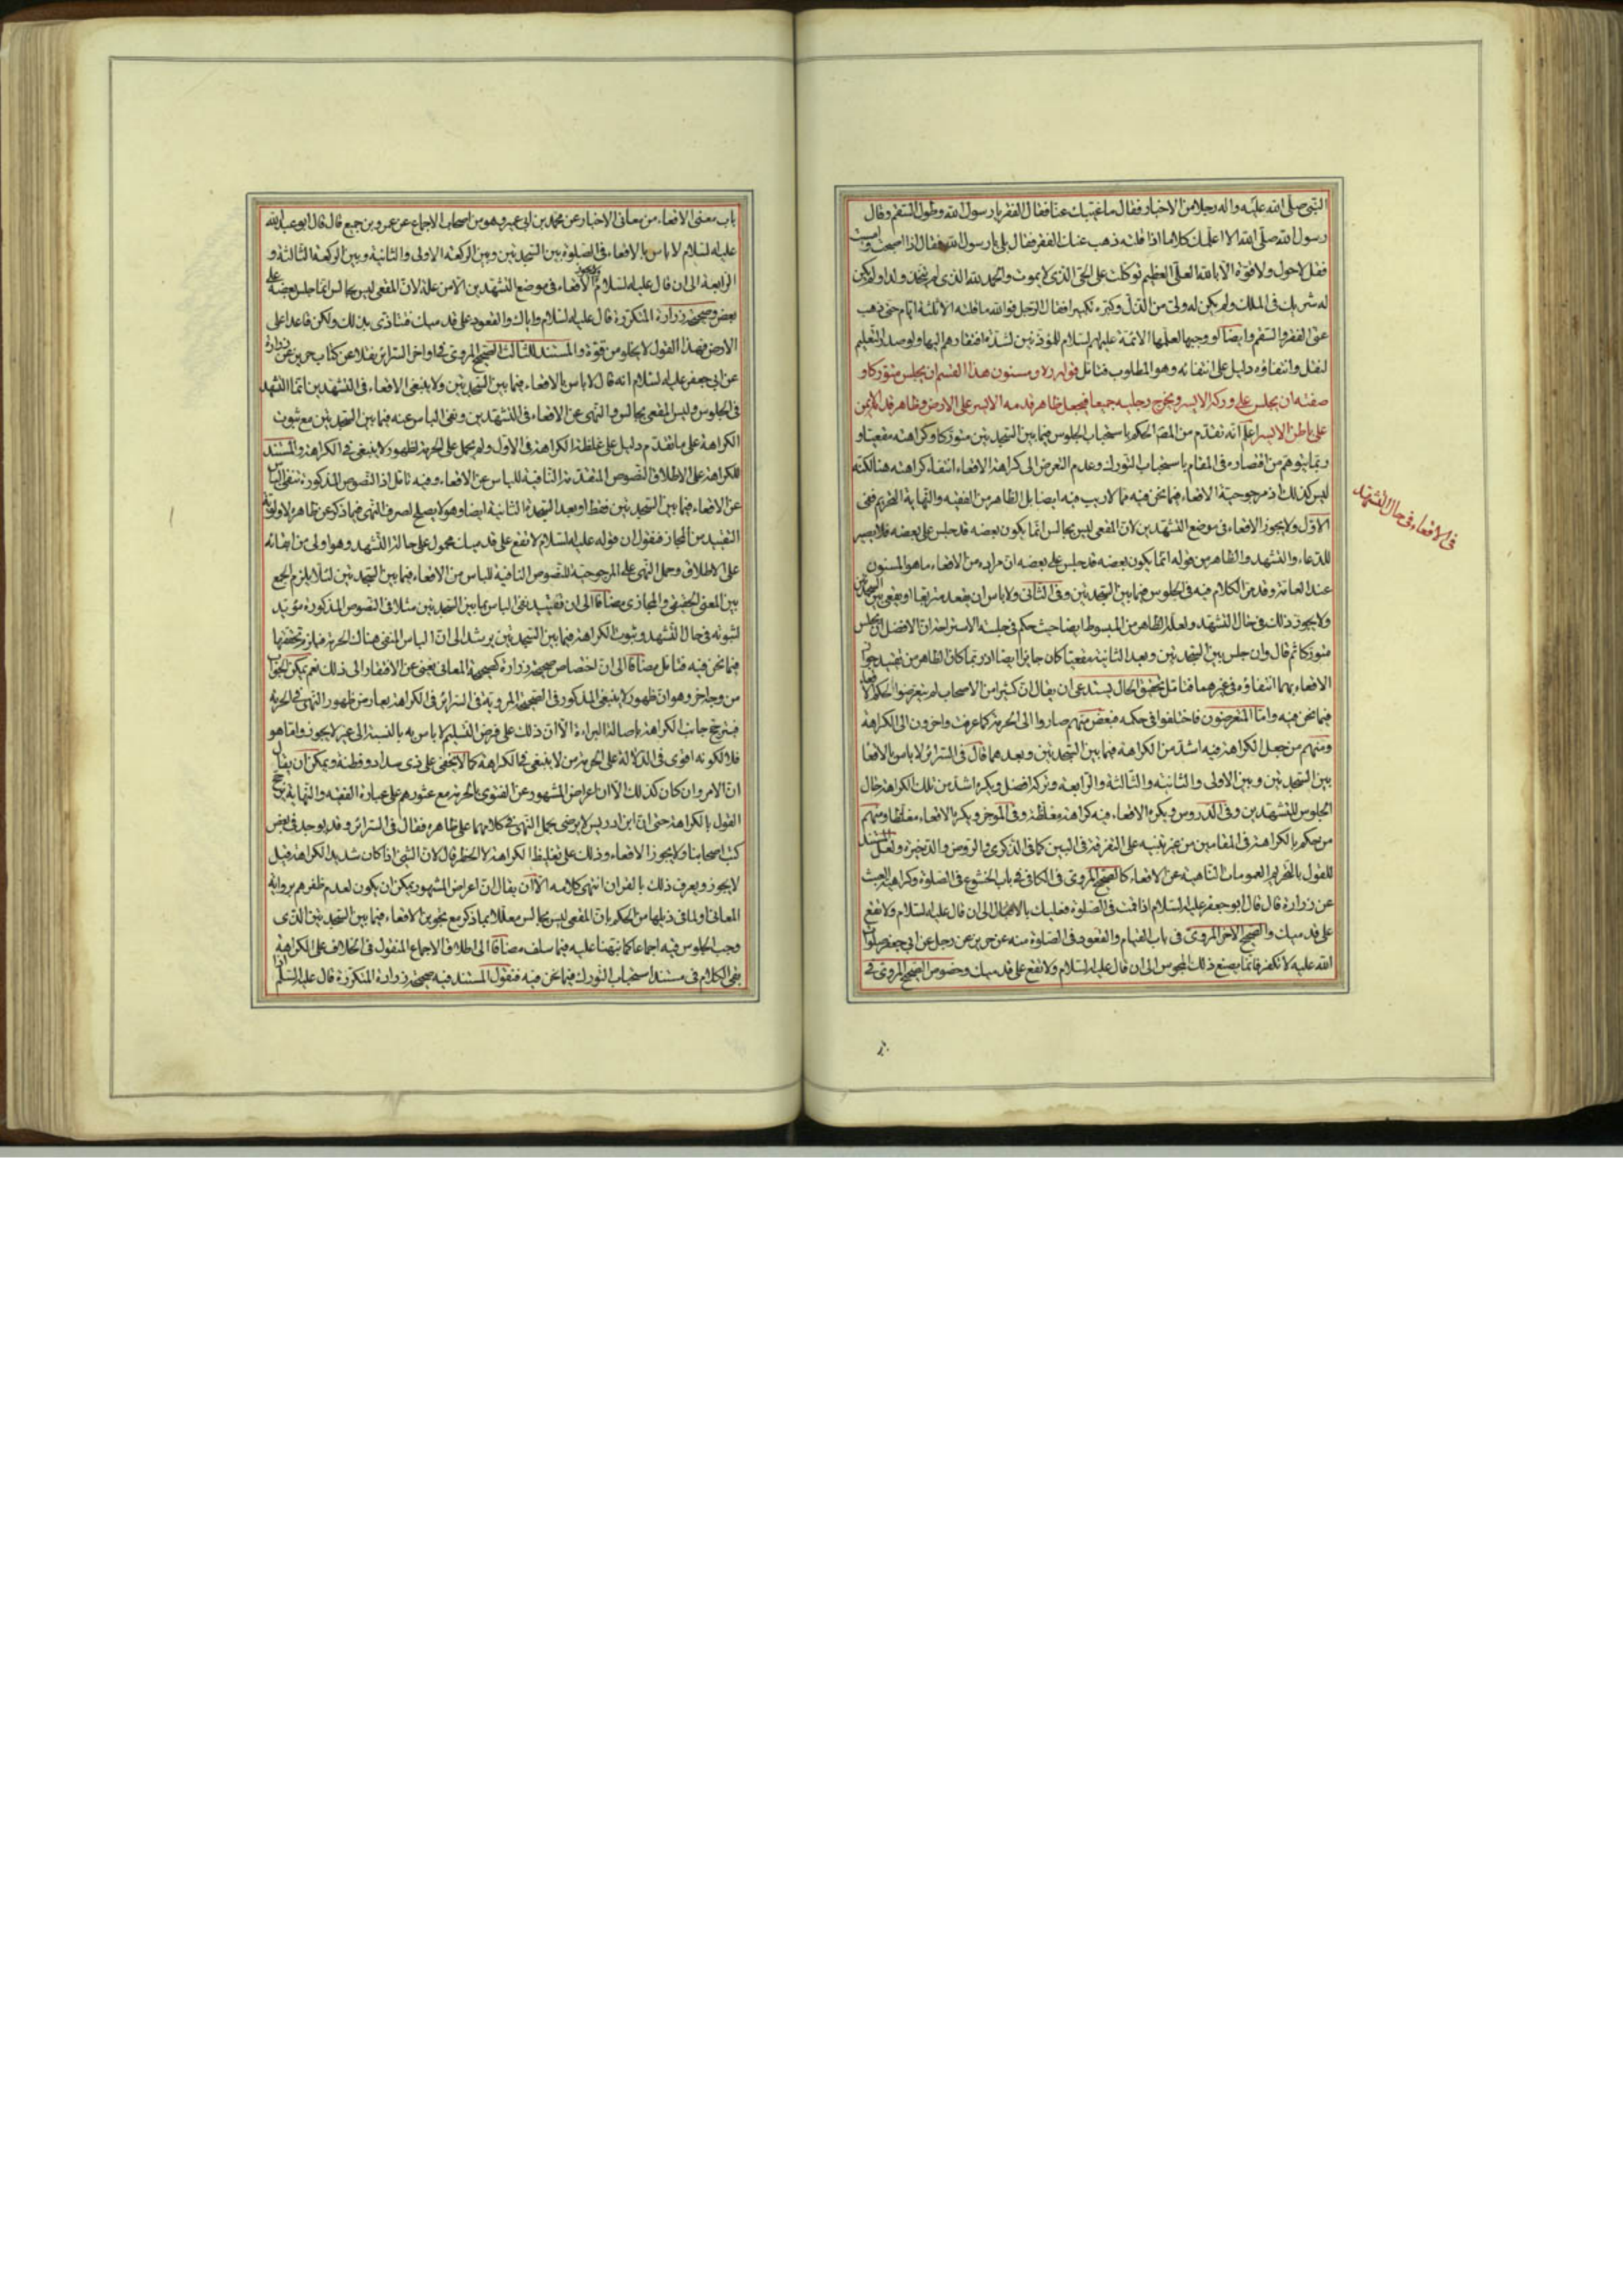 النبي صلى الله عليه واله رجلا من الاخيار فقال ما غيبك عنا فقال الفقر يا رسول الله وطول السقم وقال
رسول الله صلى الله الا اعلمك كلاما اذا قلته ذهب عنك الفقر فقال بلى يا رسول الله فقال اذا اصبحت وامسيت
فقل لا حول ولا قوة الا بالله العلي العظيم توكلت على الحي الذي لا يموت والحمد لله الذي لم يتخذ ولدا ولم يكن
له شريك في الملك ولم يكن له ولي من الذل وكبره تكبيرا فقال الرجل فوالله ما قلته الا ثلثة ايام حتى ذهب
عني الفقر والسقم وايضا لو وجبها لعلمها الائمة عليهم السلام للمؤذنين لشدة افتقارهم اليها ولو صدر التعليم
لنقل وانتفاؤه دليل على انتفائه وهو المطلوب فتامل قوله ره ومسنون هذا القسم ان يجلس متوركا و
صفته ان يجلس على وركه الايسر ويخرج رجليه جميعا فيجعل ظاهر قدمه الايسر على الارض وظاهر قدم الايمن
على باطن الايسر اعلم انه تقدم من المصنف الحكم باستحباب الجلوس فيما بين السجدتين متوركا وكراهته مقعيا و
ربما يتوهم من اقتصاره في المقام باستحباب التورك وعدم التعرض الى كراهة الاقعاء انتفاء كراهته هنا لكنه
ليس كذلك اذ مرجوحية الاقعاء فيما نحن فيه مما لا ريب فيه ايضا بل الظاهر من الفقيه والنهاية التحريم ففي
الاول ولا يجوز الاقعاء في موضع التشهدين لان المقعي ليس بجالس انما يكون بعضه قد جلس على بعضه فلا يصير
للدعاء والتشهد والظاهر من قوله انما يكون بعضه قد جلس على بعضه ان مراده من الاقعاء ما هو المسنون
عند العامة وقد مر الكلام فيه في الجلوس فيما بين السجدتين وفي الثاني ولا باس ان يقعد متربعا او يقعي بين السجدتين
ولا يجوز ذلك في حال التشهد ولعله الظاهر من المبسوط ايضا حيث حكم في جلسة الاستراحة ان الافضل ان يجلس
متوركا ثم قال وان جلس بين السجدتين وبعد الثانية مقعيا كان جايزا ايضا اذ ربما كان الظاهر من تقييد جواز
الاقعاء بهما انتفاؤه في غيرهما فتامل تحقيق الحال يستدعي ان يقال ان كثيرا من الاصحاب لم يتعرضوا لحكم الاقعاء
فيما نحن فيه واما المتعرضون فاختلفوا في حكمه فبعض منهم صاروا الى الحرمة كما عرفت واخرون الى الكراهة
ومنهم من جعل الكراهة فيه اشد من الكراهة فيما بين السجدتين وبعدهما قال في السرائر لا باس بالاقعاء
بين السجدتين وبين الاولى والثانية والثالثة والرابعة وتركه افضل ويكره اشد من تلك الكراهة حال
الجلوس للتشهدين وفي الدروس ويكره الاقعاء فيه كراهة مغلظة وفي الموجز ويكره الاقعاء مغلظا ومنهم
من حكم بالكراهة في المقامين من غير تنبيه على التفرقة في البين كما في الذكرى والروض والذخيرة ولعل المستند
للقول بالتحريم العمومات الناهية عن الاقعاء كالصحيح المروي في الكافي في باب الخشوع في الصلوة وكراهية العبث
عن زرارة قال قال ابو جعفر عليه السلام اذا قمت في الصلوة فعليك بالاقبال الى ان قال عليه السلام ولا تقع
على قدميك والصحيح الاخر المروي في باب القيام والقعود في الصلوة منه عن حريز عن رجل عن ابي جعفر صلوات
الله عليه لا تكفر فانما يصنع ذلك المجوس الى ان قال عليه السلام ولا تقع على قدميك وخصوص الصحيح المروي في
في الاقعاء في حال التشهد
باب معنى الاقعاء من معاني الاخبار عن محمد بن ابي عمير وهو من اصحاب الاجماع عن عمرو بن جميع قال قال ابو عبد الله
عليه السلام لا باس بالاقعاء في الصلوة بين السجدتين وبين الركعة الاولى والثانية وبين الركعة الثالثة و
الرابعة الى ان قال عليه السلام الاقعاء في موضع التشهدين الا من علة لان المقعي ليس بجالس انما جلس بعضه على
بعض وصحيحة زرارة المتكررة قال عليه السلام واياك والقعود على قدميك فتتاذى بذلك ولا تكن قاعدا على
الارض فهذا القول لا يخلو من قوة والمستند للثالث الصحيح المروي في اواخر السرائر نقلا عن كتاب حريز عن زرارة
عن ابي جعفر عليه السلام انه قال لا باس بالاقعاء فيما بين السجدتين ولا ينبغي الاقعاء في التشهدين انما التشهد
في الجلوس وليس المقعي بجالس والنهي عن الاقعاء في التشهدين ونفي الباس عنه فيما بين السجدتين مع ثبوت
الكراهة على ما تقدم دليل على غلظة الكراهة في الاول ولم يحمل على الحرمة لظهور لا ينبغي في الكراهة والمستند
للكراهة على الاطلاق النصوص المتقدمة النافية للباس عن الاقعاء وفيه تامل اذ النصوص المذكورة تنفي الباس
عن الاقعاء فيما بين السجدتين فقط او بعد السجدة الثانية ايضا وهو لا يصلح لصرف النهي فيما ذكر عن ظاهره لاولوية
التقييد من المجاز فنقول ان قوله عليه السلام لا تقع على قدميك محمول على حالة التشهد وهو اولى من ابقائه
على الاطلاق وحمل النهي على المرجوحية للنصوص النافية للباس من الاقعاء فيما بين السجدتين لئلا يلزم الجمع
بين المعنى الحقيقي والمجازي مضافا الى ان تقييد نفي الباس بما بين السجدتين مثلا في النصوص المذكورة مؤيد
لثبوته في حال التشهد وثبوت الكراهة فيما بين السجدتين يرشد الى ان الباس المنفي هناك الحرمة فيلزم تحققها
فيما نحن فيه فتامل مضافا الى ان اختصاص صحيحة زرارة كصحيحة المعاني يغني عن الافتقار الى ذلك نعم يمكن الجواب
من وجه اخر وهو ان ظهور لا ينبغي المذكور في الصحيحة المروية في السرائر في الكراهة يعارض ظهور النهي في الحرمة
فيترجح جانب الكراهة باصالة البراءة الا ان ذلك على فرض التسليم لا باس به بالنسبة الى غير لا يجوز واما هو
فلا لكونه اقوى في الدلالة على الحرمة من لا ينبغي في الكراهة كما لا يخفى على ذي سداد وفطنة ويمكن ان يقال
ان الامر وان كان كذلك الا ان اعراض المشهور عن الفتوى بالحرمة مع عثورهم على عبارة الفقيه والنهاية يرجح
القول بالكراهة حتى ان ابن ادريس لا يرضى بحمل النهي في كلامهما على ظاهره فقال في السرائر وقد يوجد في بعض
كتب اصحابنا ولا يجوز الاقعاء وذلك على تغليظ الكراهة لا الحظر قال لان الشيء اذا كان شديد الكراهة قيل
لا يجوز ويعرف ذلك بالقراين انتهى كلامه الا ان يقال ان اعراض المشهور يمكن ان يكون لعدم ظفرهم برواية
المعاني ولما في ذيلها من الحكم بان المقعي ليس بجالس معللا بما ذكر مع تجويز الاقعاء فيما بين السجدتين الذي
وجب الجلوس فيه اجماعا كما نبهنا عليه فيما سلف مضافا الى اطلاق الاجماع المنقول في الخلاف على الكراهة
بقي الكلام في مستند استحباب التورك فيما نحن فيه فنقول المستند فيه صحيحة زرارة المتكررة قال عليه السلم اذا